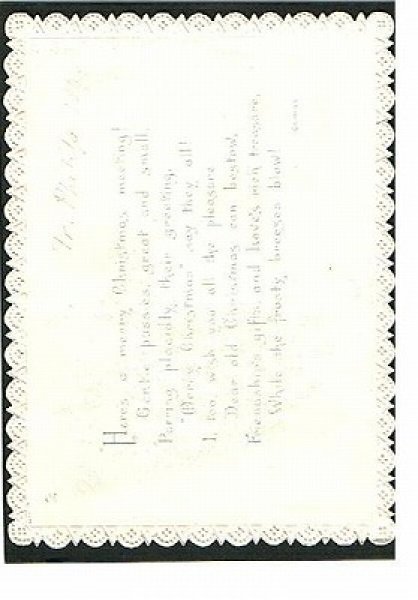 Here's a merry Christmas meeting!
Gentle pussies, great and small.
Purring placidly their greeting,
"Merry Christmas" say they all!
I, too, wish you all the pleasure
Dear old Christmas can bestow,
Friendship's gifts and love's own treasure,
While the frosty breezes blow!